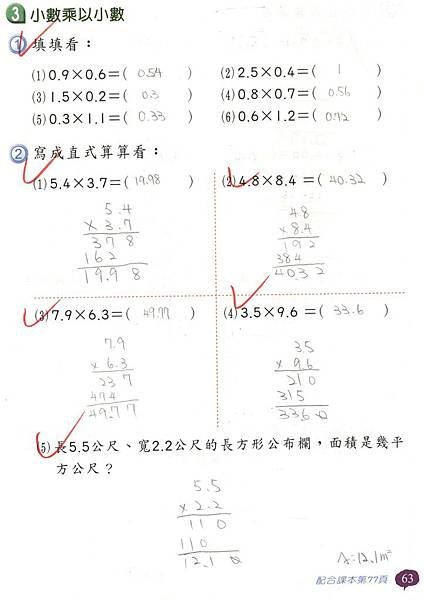 3 小數乘以小數
1 填填看：
(1) 0.9×0.6=( 0.54 ) (2) 2.5×0.4=( 1 )
(3) 1.5×0.2=( 0.3 ) (4) 0.8×0.7=( 0.56 )
(5) 0.3×1.1=( 0.33 ) (6) 0.6×1.2=( 0.72 )
2 寫成直式算算看：
(1) 5.4×3.7=( 19.98 ) (2) 4.8×8.4=( 40.32 )
5.4
×3.7
378
162
19.98
48
×8.4
192
384
40.32
(3) 7.9×6.3=( 49.77 ) (4) 3.5×9.6=( 33.6 )
7.9
×6.3
237
474
49.77
3.5
×9.6
210
315
33.60
(5) 長5.5公尺、寬2.2公尺的長方形公布欄，面積是幾平
方公尺？
5.5
×2.2
110
110
12.10
A:12.1m²
配合課本第77頁 63